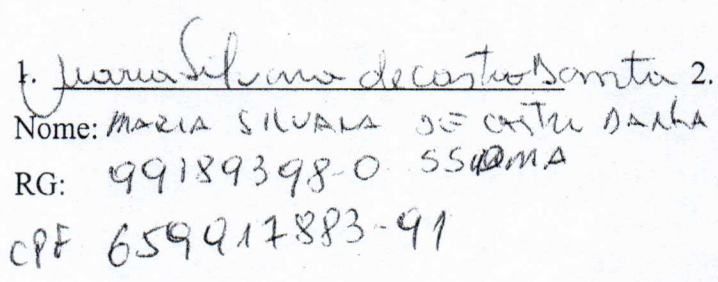 1. Maria Silvana de Castro Danta 2.
Nome: MARIA SILVANA DE CASTRO DANTA
RG: 99189398-0 SSPMA
CPF 659917883-91